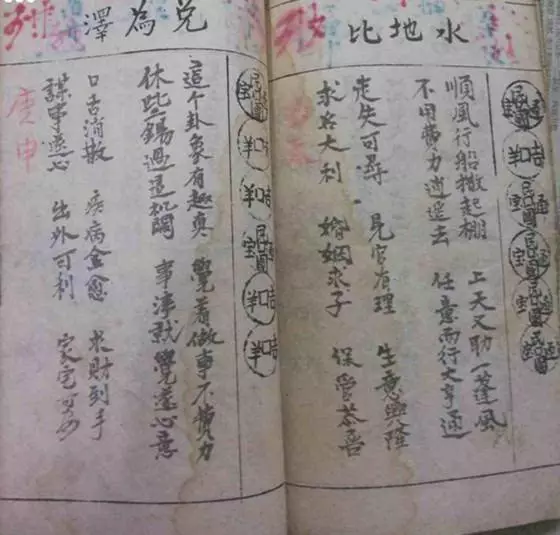 水地比
順風行船撒起棚 上天又助一蓬風
不用費力逍遙去 任意而行大亨通
走失可尋 見官有理 生意興隆
求名大利 婚姻求子 保管恭喜
兌為澤
這个卦象有趣真 覺着做事不費力
休 過這机關 事 就覺遂心意
口舌消散 疾病全愈 求財到手
謀事遂心 出外可利 家宅
庚申